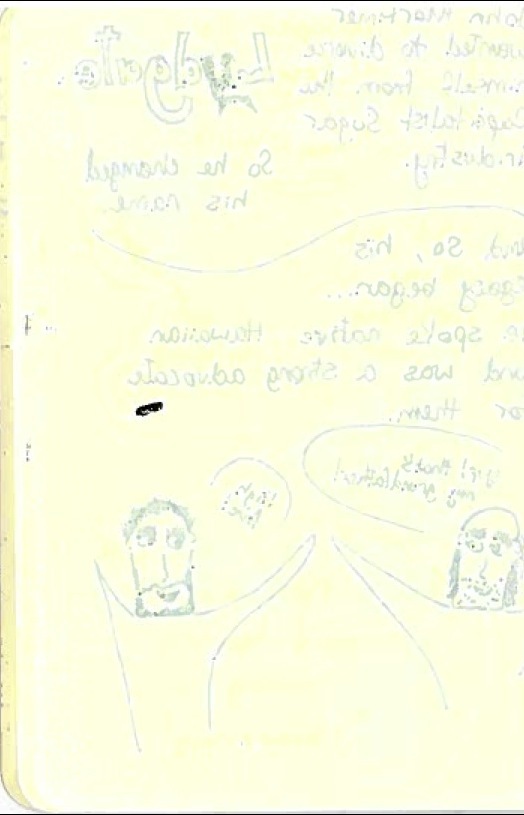 John Mortimer
wanted to divorce
himself from the
Capitalist Sugar
Industry.
Lydgate
So he changed
his name
And so, his
legacy began...
He spoke native Hawaiian
and was a strong advocate
for them.
that's
my grandfather!